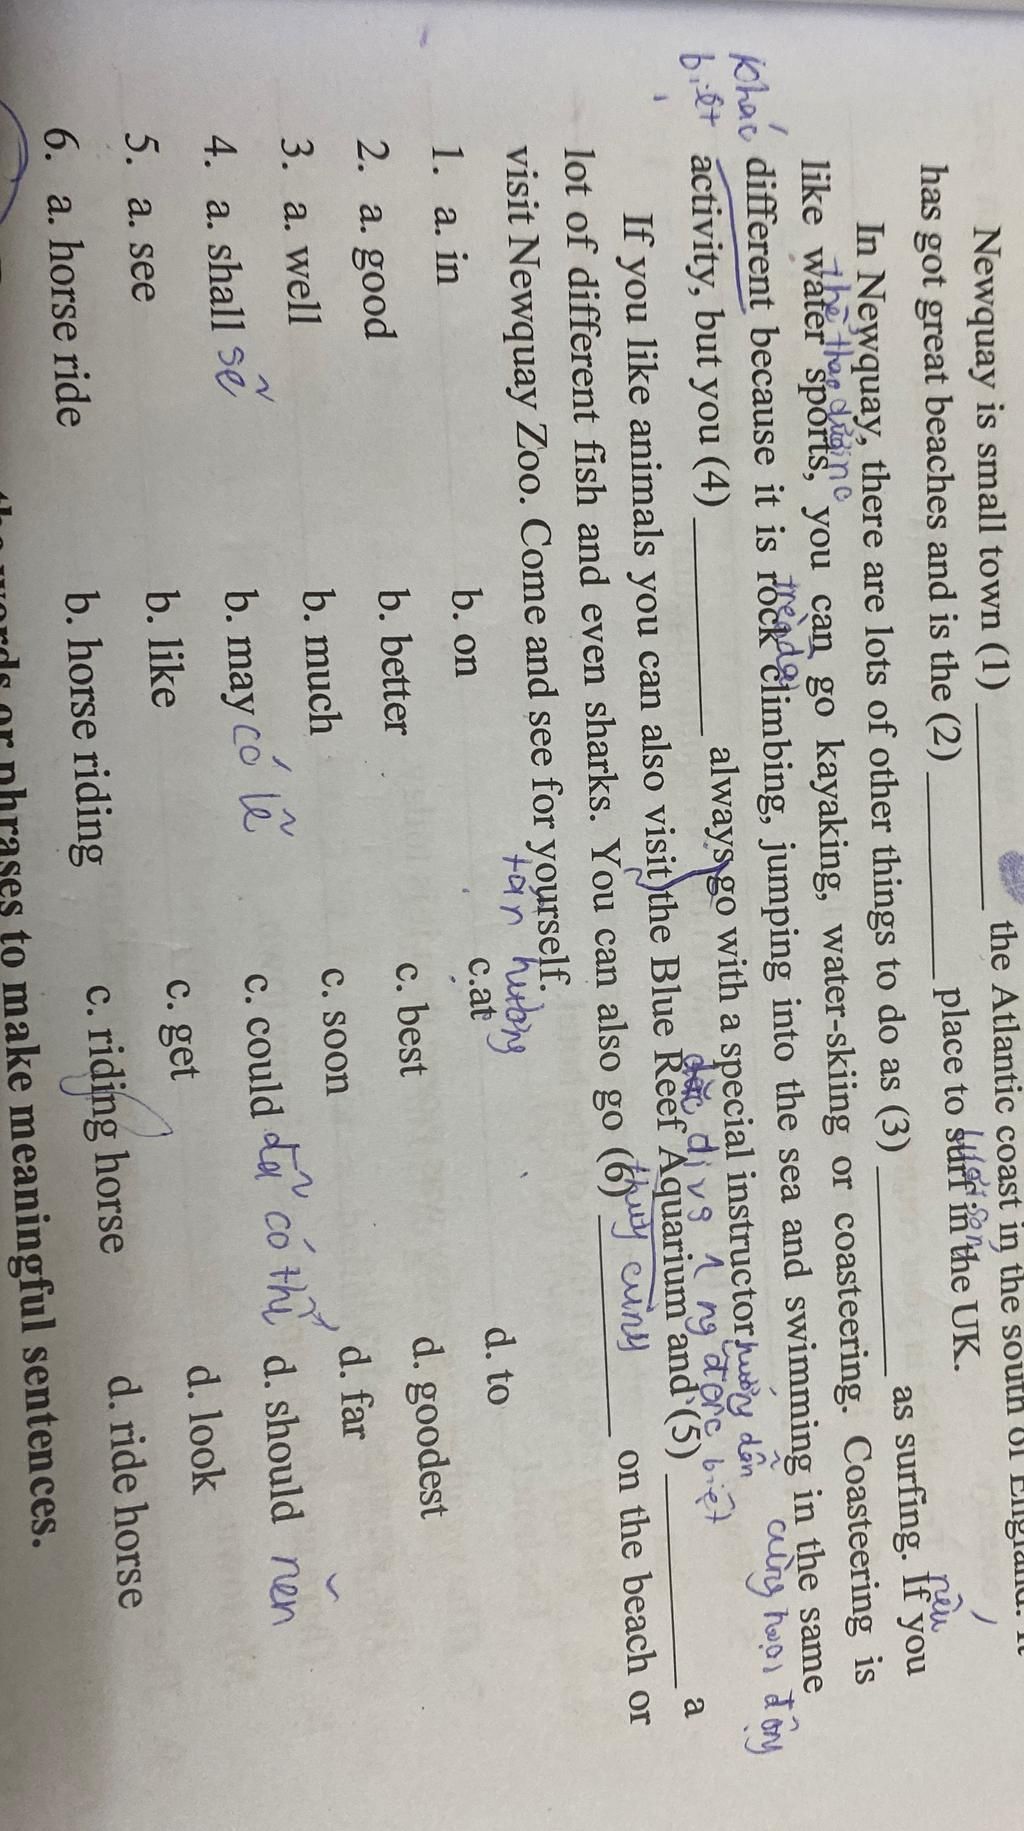 Newquay is small town (1) ________ the Atlantic coast in the south of England. It
has got great beaches and is the (2) ________ place to surf in the UK.
In Newquay, there are lots of other things to do as (3) ________ as surfing. If you
nếu
like water sports, you can go kayaking, water-skiing or coasteering. Coasteering is
khác
different because it is rock climbing, jumping into the sea and swimming in the same
biệt
activity, but you (4) ________ always go with a special instructor
hướng dẫn
cùng hoạt động
If you like animals you can also visit the Blue Reef Aquarium and (5) ________ a
thuỷ cung
lot of different fish and even sharks. You can also go (6) ________ on the beach or
visit Newquay Zoo. Come and see for yourself.
tận hưởng
1. a. in b. on c.at d. to
2. a. good b. better c. best d. goodest
3. a. well b. much c. soon d. far
4. a. shall sẽ b. may có lẽ c. could đã có thể d. should nên
5. a. see b. like c. get d. look
6. a. horse ride b. horse riding c. riding horse d. ride horse
words or phrases to make meaningful sentences.